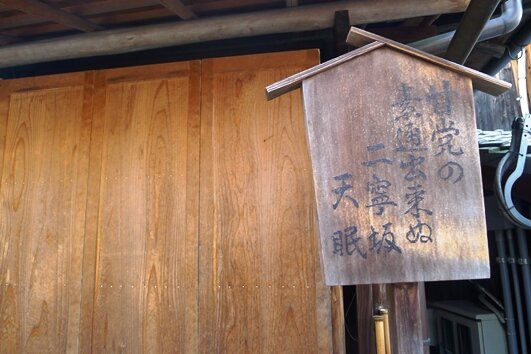 甘党の
素通出来ぬ
二寧坂
天眠